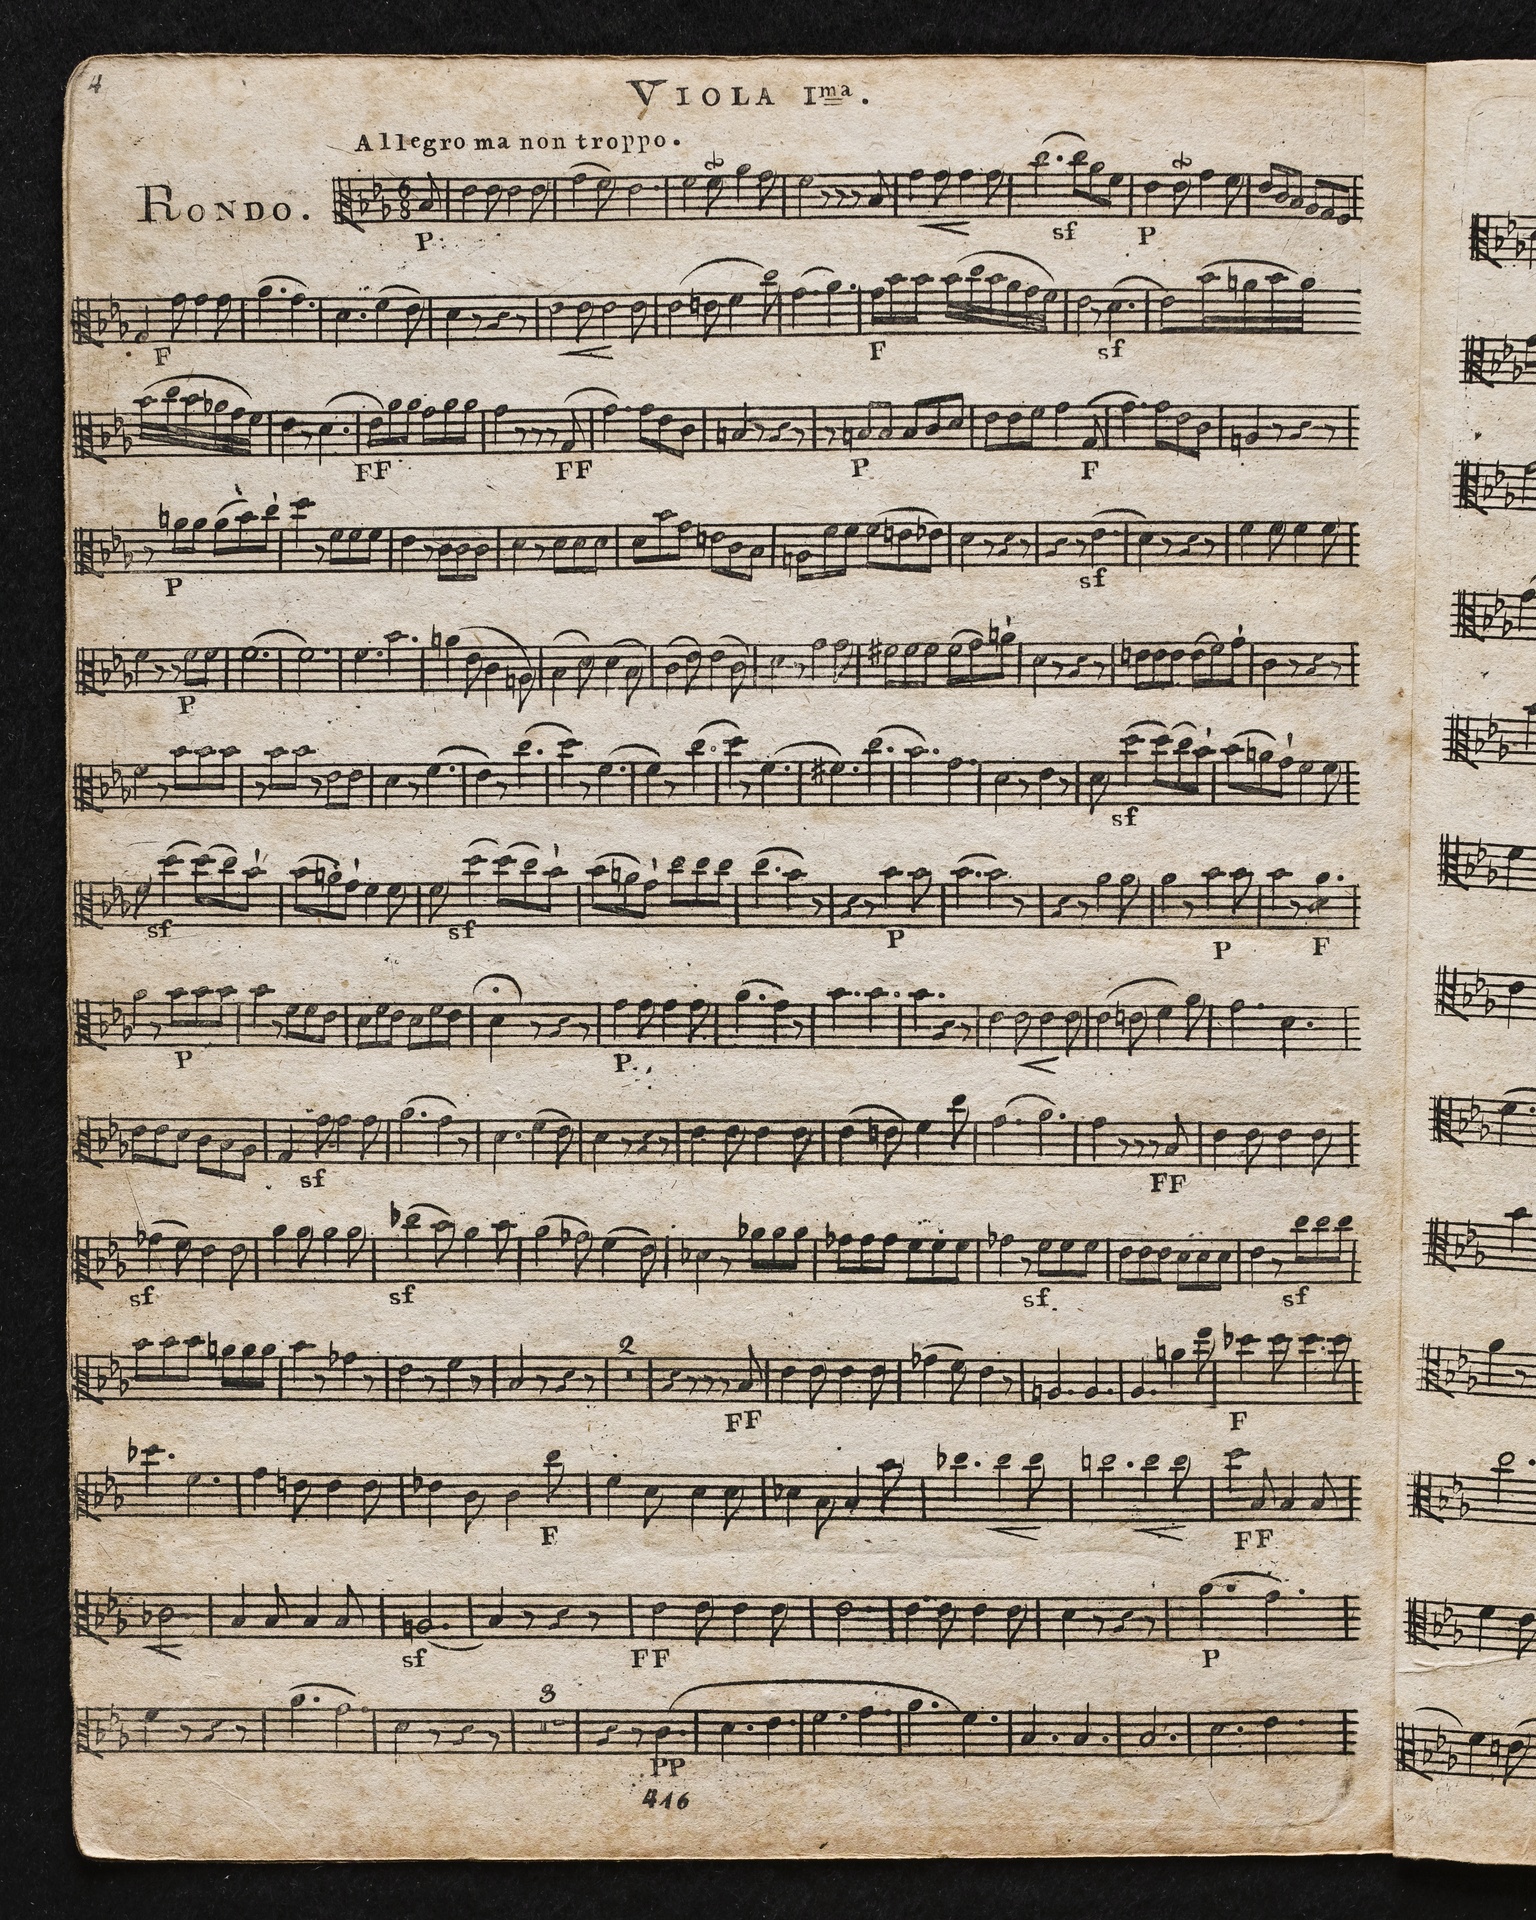 4
VIOLA Ima.
Allegro ma non troppo.
RONDO.
6
8
P. sf P
F F sf
FF FF P F
P sf
P
sf
sf sf P P F
P P.
sf FF
sf sf sf. sf
2
FF F
F FF
sf FF P
3
PP
416